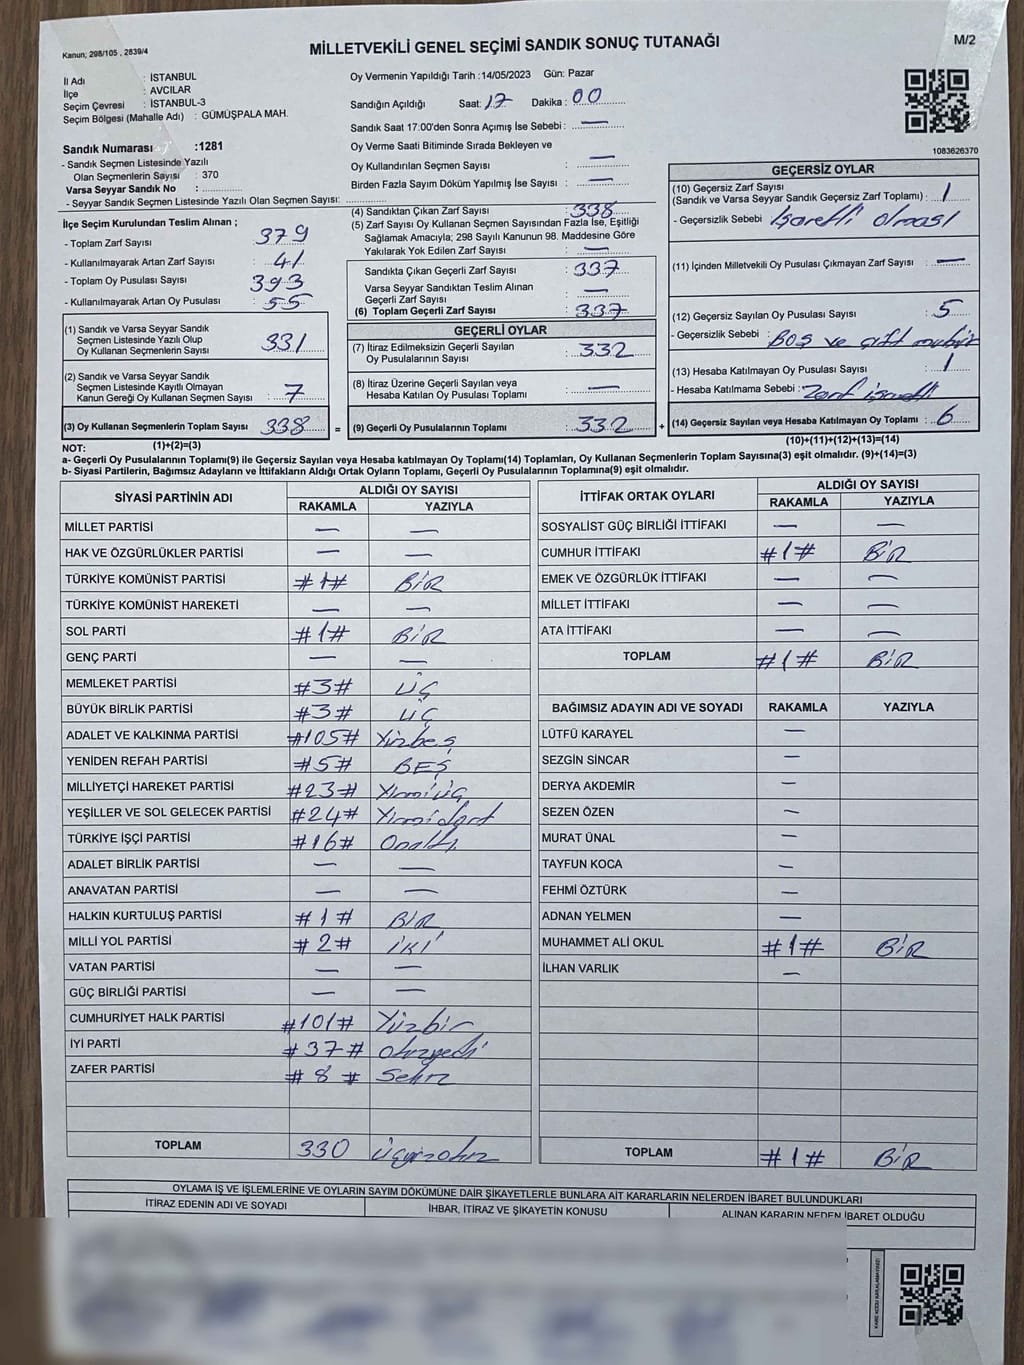 Kanun; 298/105 , 2839/4
MİLLETVEKİLİ GENEL SEÇİMİ SANDIK SONUÇ TUTANAĞI
M/2
İl Adı : İSTANBUL
İlçe : AVCILAR
Seçim Çevresi : İSTANBUL-3
Seçim Bölgesi (Mahalle Adı) : GÜMÜŞPALA MAH.
Sandık Numarası :1281
- Sandık Seçmen Listesinde Yazılı
Olan Seçmenlerin Sayısı : 370
Varsa Seyyar Sandık No : ............
- Seyyar Sandık Seçmen Listesinde Yazılı Olan Seçmen Sayısı: ....................
Oy Vermenin Yapıldığı Tarih :14/05/2023 Gün: Pazar
Sandığın Açıldığı Saat: 17 Dakika : 00
Sandık Saat 17:00'den Sonra Açımış İse Sebebi : —
Oy Verme Saati Bitiminde Sırada Bekleyen ve
Oy Kullandırılan Seçmen Sayısı : —
Birden Fazla Sayım Döküm Yapılmış İse Sayısı : —
1083626370
İlçe Seçim Kurulundan Teslim Alınan ;
- Toplam Zarf Sayısı : 379
- Kullanılmayarak Artan Zarf Sayısı : 41
- Toplam Oy Pusulası Sayısı : 393
- Kullanılmayarak Artan Oy Pusulası : 55
(1) Sandık ve Varsa Seyyar Sandık
Seçmen Listesinde Yazılı Olup
Oy Kullanan Seçmenlerin Sayısı : 331
(2) Sandık ve Varsa Seyyar Sandık
Seçmen Listesinde Kayıtlı Olmayan
Kanun Gereği Oy Kullanan Seçmen Sayısı : 7
(3) Oy Kullanan Seçmenlerin Toplam Sayısı : 338 =
(1)+(2)=(3)
(4) Sandıktan Çıkan Zarf Sayısı : 338
(5) Zarf Sayısı Oy Kullanan Seçmen Sayısından Fazla İse, Eşitliği
Sağlamak Amacıyla; 298 Sayılı Kanunun 98. Maddesine Göre
Yakılarak Yok Edilen Zarf Sayısı : —
Sandıkta Çıkan Geçerli Zarf Sayısı : 337
Varsa Seyyar Sandıktan Teslim Alınan
Geçerli Zarf Sayısı : —
(6) Toplam Geçerli Zarf Sayısı : 337
GEÇERLİ OYLAR
(7) İtiraz Edilmeksizin Geçerli Sayılan
Oy Pusulalarının Sayısı : 332
(8) İtiraz Üzerine Geçerli Sayılan veya
Hesaba Katılan Oy Pusulası Toplamı : —
(9) Geçerli Oy Pusulalarının Toplamı : 332 +
GEÇERSİZ OYLAR
(10) Geçersiz Zarf Sayısı
(Sandık ve Varsa Seyyar Sandık Geçersiz Zarf Toplamı) : 1
- Geçersizlik Sebebi : İşaretli olması
(11) İçinden Milletvekili Oy Pusulası Çıkmayan Zarf Sayısı : —
(12) Geçersiz Sayılan Oy Pusulası Sayısı : 5
- Geçersizlik Sebebi : BOŞ ve çift mühür
(13) Hesaba Katılmayan Oy Pusulası Sayısı : 1
- Hesaba Katılmama Sebebi : Zarf işaretli
(14) Geçersiz Sayılan veya Hesaba Katılmayan Oy Toplamı : 6
(10)+(11)+(12)+(13)=(14)
NOT:
a- Geçerli Oy Pusulalarının Toplamı(9) ile Geçersiz Sayılan veya Hesaba Katılmayan Oy Toplamı(14) Toplamları, Oy Kullanan Seçmenlerin Toplam Sayısına(3) eşit olmalıdır. (9)+(14)=(3)
b- Siyasi Partilerin, Bağımsız Adayların ve İttifakların Aldığı Ortak Oyların Toplamı, Geçerli Oy Pusulalarının Toplamına(9) eşit olmalıdır.
SİYASİ PARTİNİN ADI ALDIĞI OY SAYISI
RAKAMLA YAZIYLA
MİLLET PARTİSİ — —
HAK VE ÖZGÜRLÜKLER PARTİSİ — —
TÜRKİYE KOMÜNİST PARTİSİ #1# BİR
TÜRKİYE KOMÜNİST HAREKETİ — —
SOL PARTİ #1# BİR
GENÇ PARTİ — —
MEMLEKET PARTİSİ #3# ÜÇ
BÜYÜK BİRLİK PARTİSİ #3# ÜÇ
ADALET VE KALKINMA PARTİSİ #105# Yüzbeş
YENİDEN REFAH PARTİSİ #5# BEŞ
MİLLİYETÇİ HAREKET PARTİSİ #23# Yirmiüç
YEŞİLLER VE SOL GELECEK PARTİSİ #24# Yirmidört
TÜRKİYE İŞÇİ PARTİSİ #16# Onaltı
ADALET BİRLİK PARTİSİ — —
ANAVATAN PARTİSİ — —
HALKIN KURTULUŞ PARTİSİ #1# BİR
MİLLİ YOL PARTİSİ #2# İKİ
VATAN PARTİSİ — —
GÜÇ BİRLİĞİ PARTİSİ — —
CUMHURİYET HALK PARTİSİ #101# Yüzbir
İYİ PARTİ #37# otuzyedi
ZAFER PARTİSİ #8# Sekiz
TOPLAM 330 Üçyüzotuz
İTTİFAK ORTAK OYLARI ALDIĞI OY SAYISI
RAKAMLA YAZIYLA
SOSYALİST GÜÇ BİRLİĞİ İTTİFAKI — —
CUMHUR İTTİFAKI #1# BİR
EMEK VE ÖZGÜRLÜK İTTİFAKI — —
MİLLET İTTİFAKI — —
ATA İTTİFAKI — —
TOPLAM #1# BİR
BAĞIMSIZ ADAYIN ADI VE SOYADI RAKAMLA YAZIYLA
LÜTFÜ KARAYEL —
SEZGİN SİNCAR —
DERYA AKDEMİR —
SEZEN ÖZEN —
MURAT ÜNAL —
TAYFUN KOCA —
FEHMİ ÖZTÜRK —
ADNAN YELMEN —
MUHAMMET ALİ OKUL #1# BİR
İLHAN VARLIK —
TOPLAM #1# BİR
OYLAMA İŞ VE İŞLEMLERİNE VE OYLARIN SAYIM DÖKÜMÜNE DAİR ŞİKAYETLERLE BUNLARA AİT KARARLARIN NELERDEN İBARET BULUNDUKLARI
İTİRAZ EDENİN ADI VE SOYADI İHBAR, İTİRAZ VE ŞİKAYETİN KONUSU ALINAN KARARIN NEDEN İBARET OLDUĞU